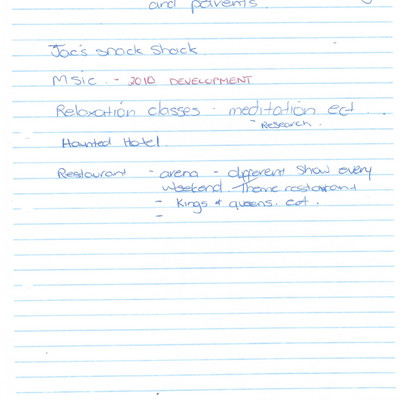 and parents.
Joe's snack shack
MSic - 2010 DEVELOPMENT
Relaxation classes - meditation ect...
- Research.
Haunted Hotel
Restaurant - arena - different show every
weekend. Theme restaurant
- Kings & queens. ect.
-